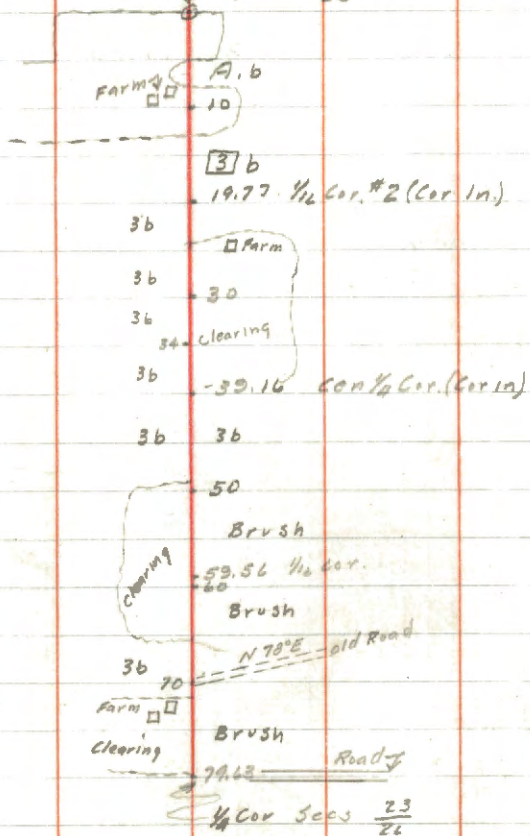 A. b
Farm
10
3 b
19.77 1/16 Cor. #2 (Cor in.)
3b
Farm
3b
30
3b
34 clearing
3b
39.16 cen 1/4 Cor. (Cor in)
3b 3b
50
Brush
clearing
59.56 1/16 cor.
60
Brush
N 78°E old Road
3b
70
Farm
Brush
Clearing
Road
79.63
1/4 Cor Secs 23/26